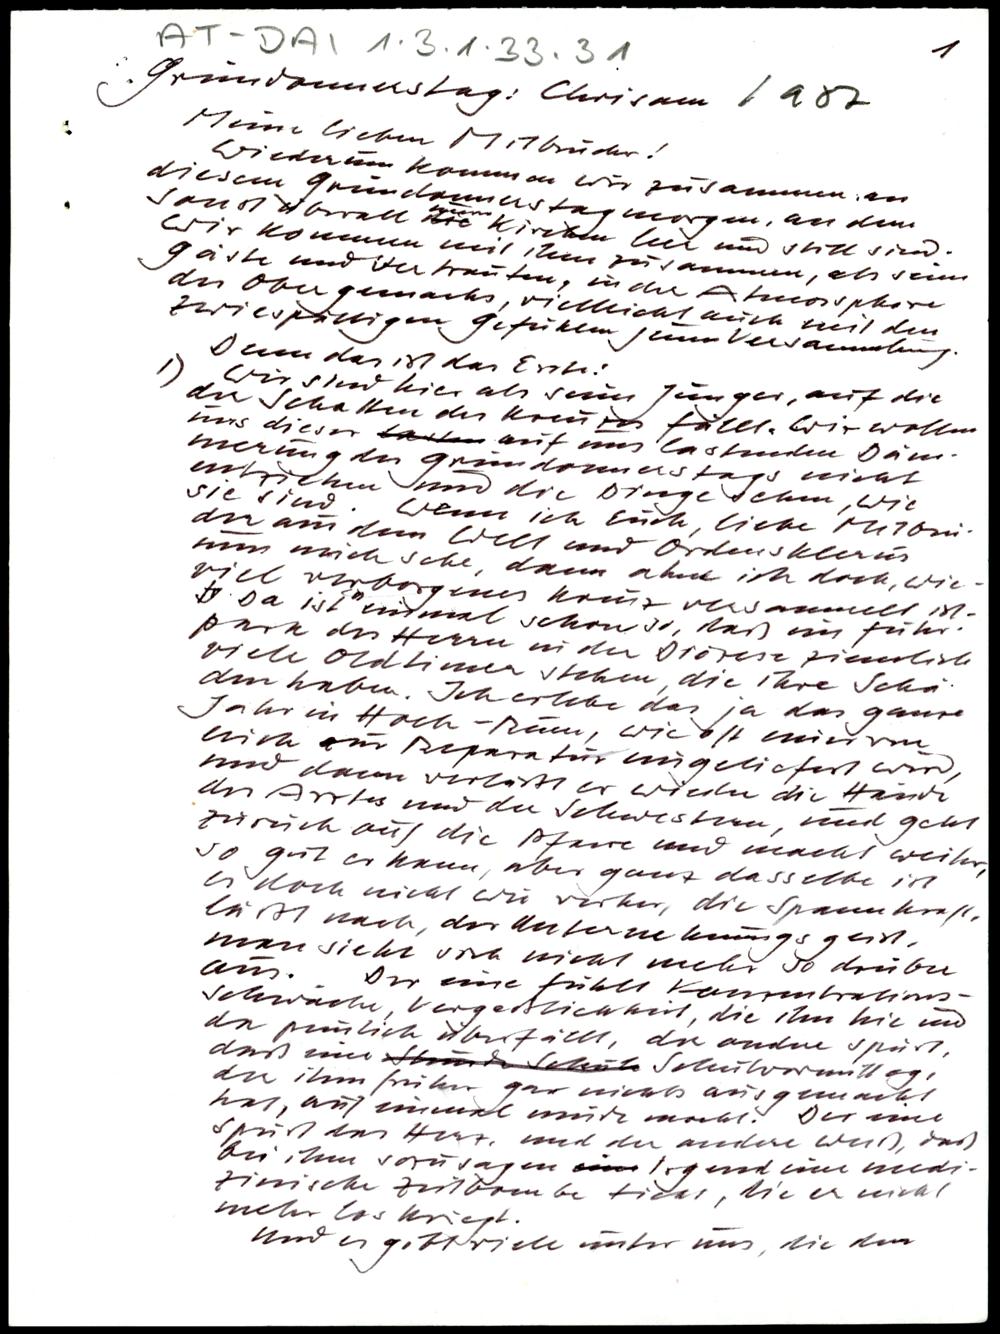 AT-DAI 1.3.1.33.31
1
Gründonnerstag: Chrisam 1987
Meine lieben Mitbrüder!
Wiederum kommen wir zusammen an
diesem Gründonnerstagmorgen, an dem
sonst überall die Kirchen leer und still sind.
Wir kommen mit ihm zusammen, als seine
Gäste und Vertrauten, in der Atmosphäre
des Obergemachs, vielleicht auch mit den
zwiespältigen Gefühlen jener Versammlung.
Denn das ist das Erste:
1) Wir sind hier als seine Jünger, auf die
der Schatten des Kreuzes fällt. Wir wollen
uns dieser auf uns lastenden Däm-
merung des Gründonnerstags nicht
entziehen und die Dinge sehen, wie
sie sind. Wenn ich Euch, liebe Mitbrü-
der aus dem Welt und Ordensklerus
um mich sehe, dann ahne ich doch, wie-
viel verborgenes Kreuz versammelt ist.
Da ist einmal schon so, daß im Fuhr-
park des Herrn in der Diözese ziemlich
viele Oldtimer stehen, die ihre Schä-
den haben. Ich erlebe das ja das ganze
Jahr in Hoch-Rum, wie oft einer von
euch zur Reparatur eingeliefert wird,
und dann verläßt er wieder die Hände
des Arztes und der Schwestern, und geht
zurück auf die Pfarre und macht weiter,
so gut er kann, aber ganz dasselbe ist
es doch nicht wie vorher, die Spannkraft
läßt nach, der Unternehmungsgeist,
man sieht sich nicht mehr so drüber
aus. Der eine fühlt Konzentrations-
schwäche, Vergeßlichkeit, die ihn hie und
da peinlich überfällt, der andre spürt,
daß ein Schulvormittag,
der ihm früher gar nichts ausgemacht
hat, auf einmal müde macht. Der eine
spürt das Herz, und der andere weiß, daß
bei ihm sozusagen irgend eine medi-
zinische Zeitbombe tickt, die er nicht
mehr los kriegt.
Und es gibt viele unter uns, die den